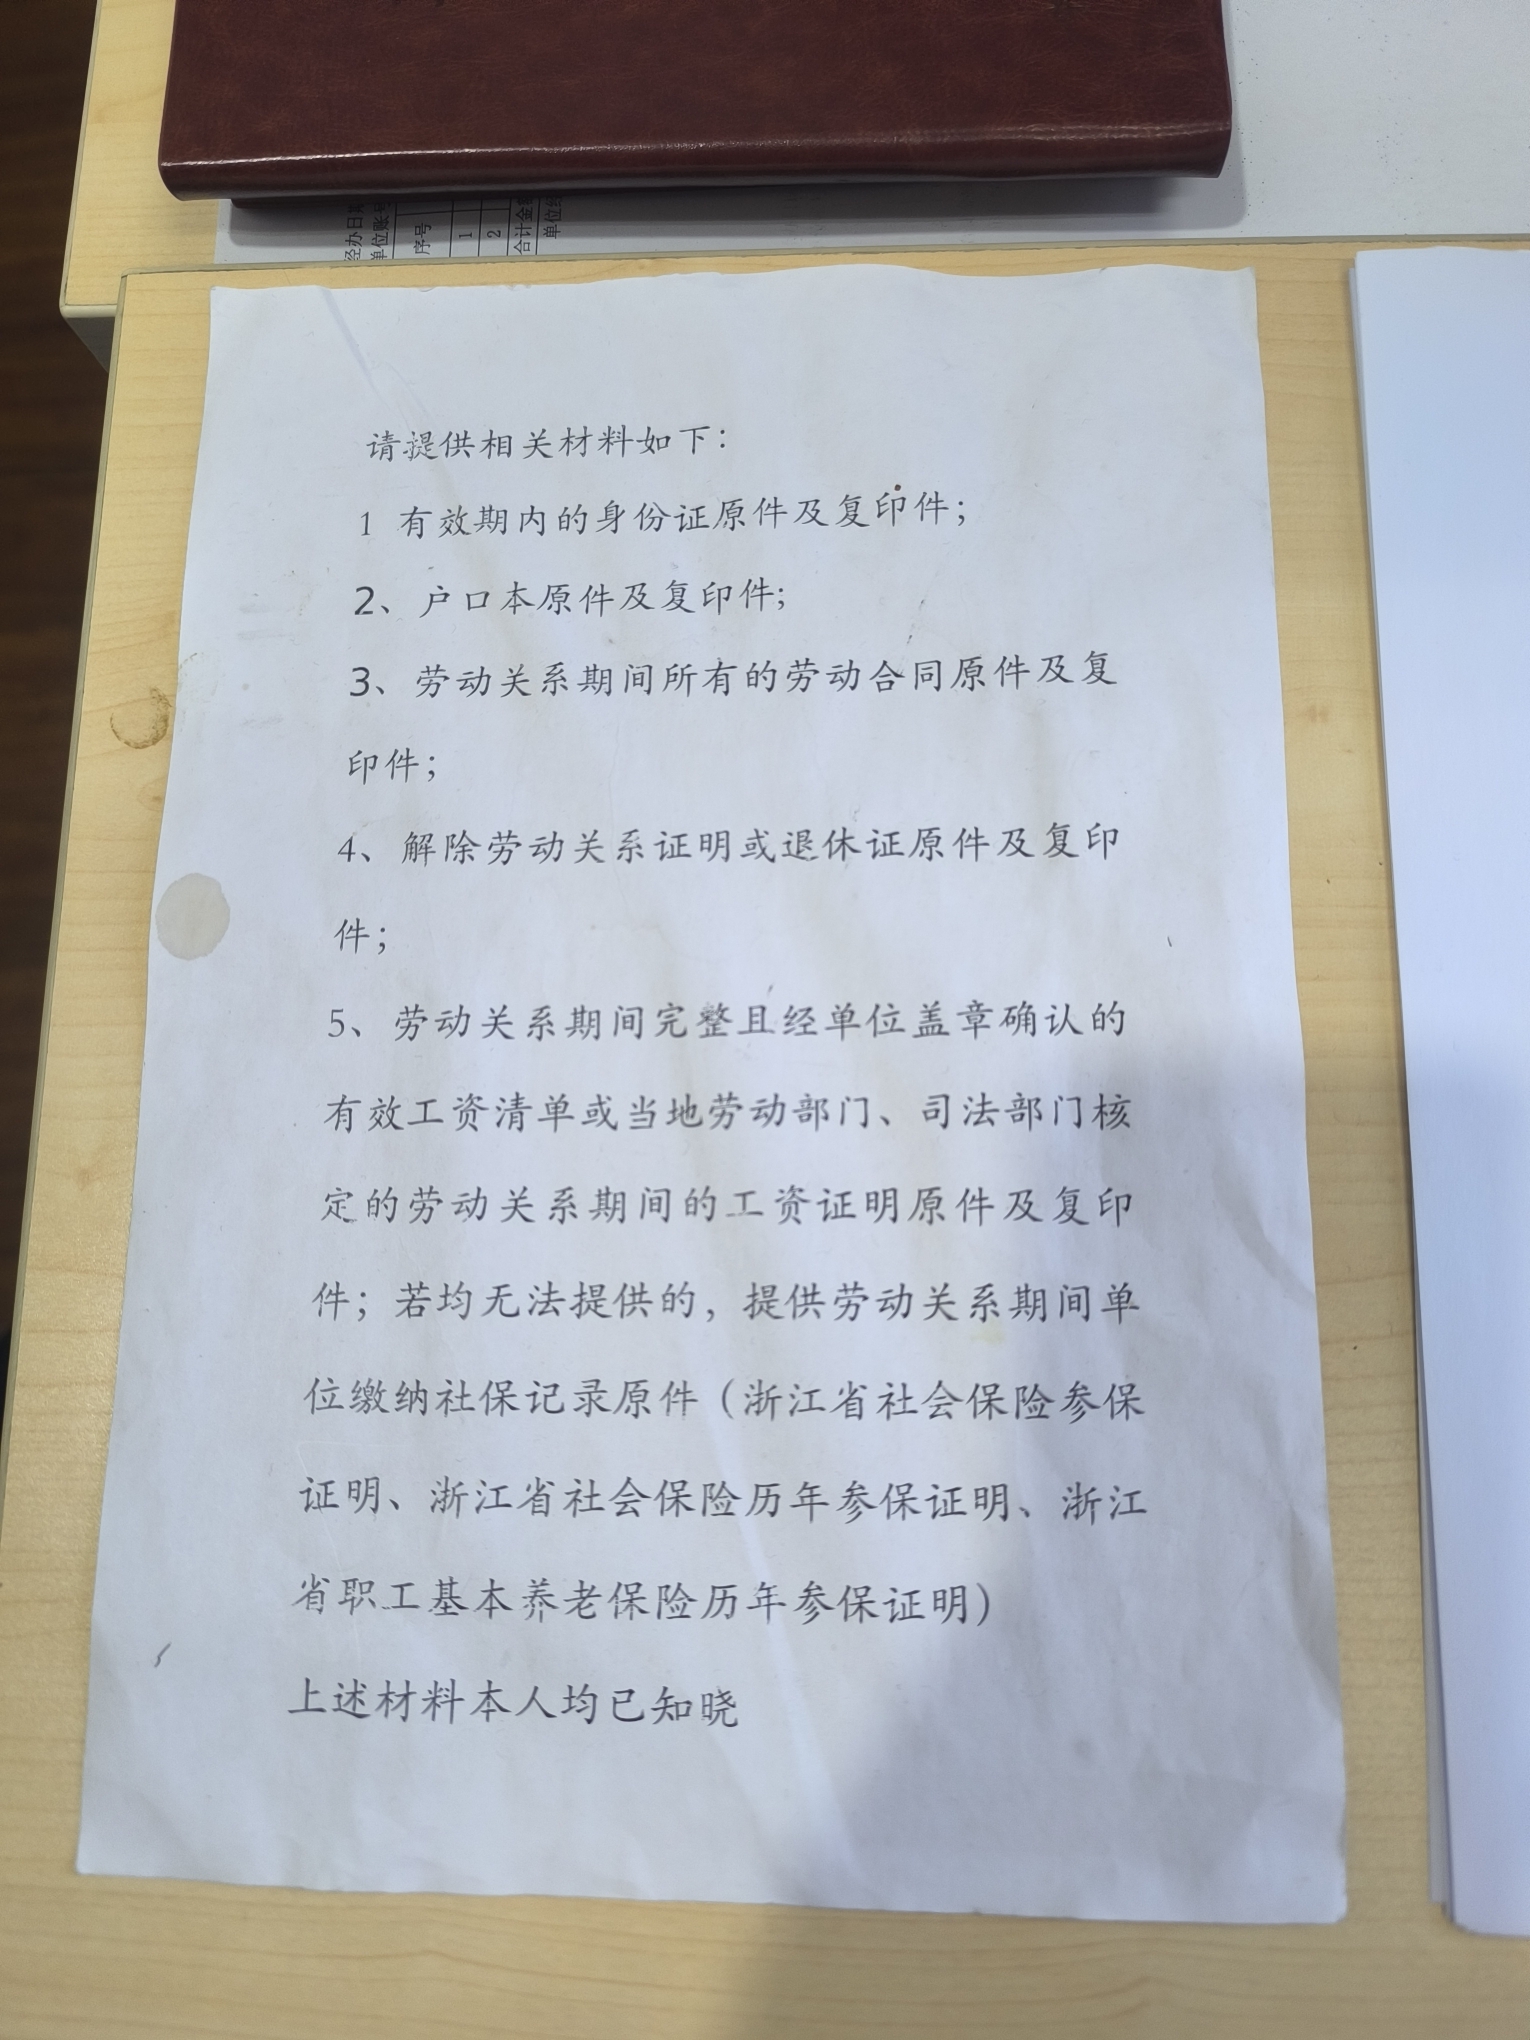 经办日
单位账号
序号
1
2
合计金
单位
请提供相关材料如下：
1 有效期内的身份证原件及复印件；
2、户口本原件及复印件;
3、劳动关系期间所有的劳动合同原件及复
印件；
4、解除劳动关系证明或退休证原件及复印
件；
5、劳动关系期间完整且经单位盖章确认的
有效工资清单或当地劳动部门、司法部门核
定的劳动关系期间的工资证明原件及复印
件；若均无法提供的，提供劳动关系期间单
位缴纳社保记录原件（浙江省社会保险参保
证明、浙江省社会保险历年参保证明、浙江
省职工基本养老保险历年参保证明）
上述材料本人均已知晓